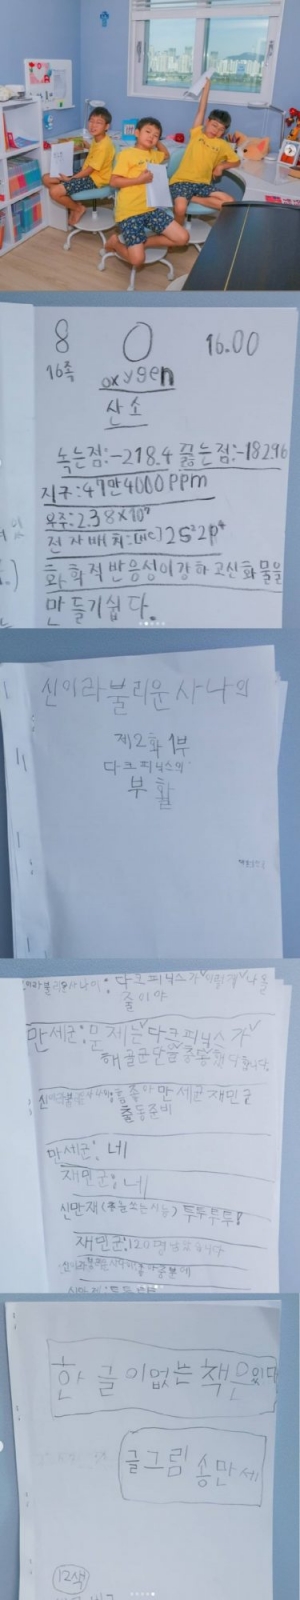 8 O 16.00
16족 oxygen
산소
녹는점:-218.4 끓는점:-182.96
지구:47만4000ppm
우주:2.38×10⁷
전자배치:[He]2s²2p⁴
화학적반응성이강하고산화물을
만들기쉽다.
신이라불리운사나의
제2화 1부
다크피닉스의
부활
다크피닉스가
줄이야
만세군:문제는다크피닉스가
해골군단을
만세군재민군
출동준비
만세군:네
재민군:네
신만재(총을쏘는시늉)투투투투!
재민군:120명남았습니다
한글이없는책은있다
글그림 송만세
12색